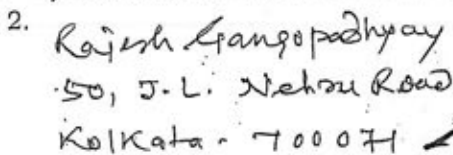 2.
Rajesh Gangopadhyay
50, J.L. Nehru Road
Kolkata - 700071